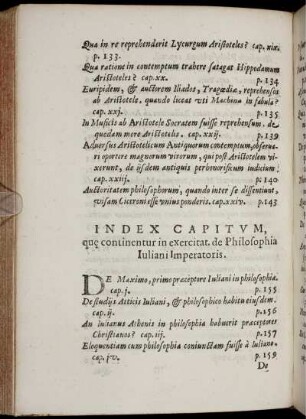 Qua in re reprehenderit Lycurgum Aristoteles? cap. xix.
p. 133.
Qua ratione in contemptum trahere satagat Hippodamum
Aristoteles? cap. xx. p. 134
Euripidem, & auctorem Iliados, Tragœdia, reprehensos
ab Aristotele. quando liceat vti Machina in fabula?
cap. xxj. p. 135
In Musicis ab Aristotele Socratem fuisse reprehensum. de
quodam mere Aristotelis. cap. xxij. p. 139
Aduersus Aristotelicum Antiquorum contemptum, obserua-
ri oportere magnorum virorum, qui post Aristotelem vi-
xerunt, de ijsdem antiquis perhonorificum iudicium.
cap. xxiij. p. 140
Auctoritatem philosophorum, quando inter se dissentiunt,
visam Ciceroni esse vnius ponderis. cap. xxiv. p. 143
INDEX CAPITVM,
quę continentur in exercitat. de Philosophia
Iuliani Imperatoris.
DE Maximo, primo præceptore Iuliani in philosophia.
cap. j. p. 155
De studijs Atticis Iuliani, & philosophico habitu eiusdem.
cap. ij. p. 156
An Iulianus Athenis in philosophia habuerit præceptores
Christianos? cap. iij. p. 157
Eloquentiam cum philosophia coniunctam fuisse à Iuliano.
cap. jv. p. 159
De